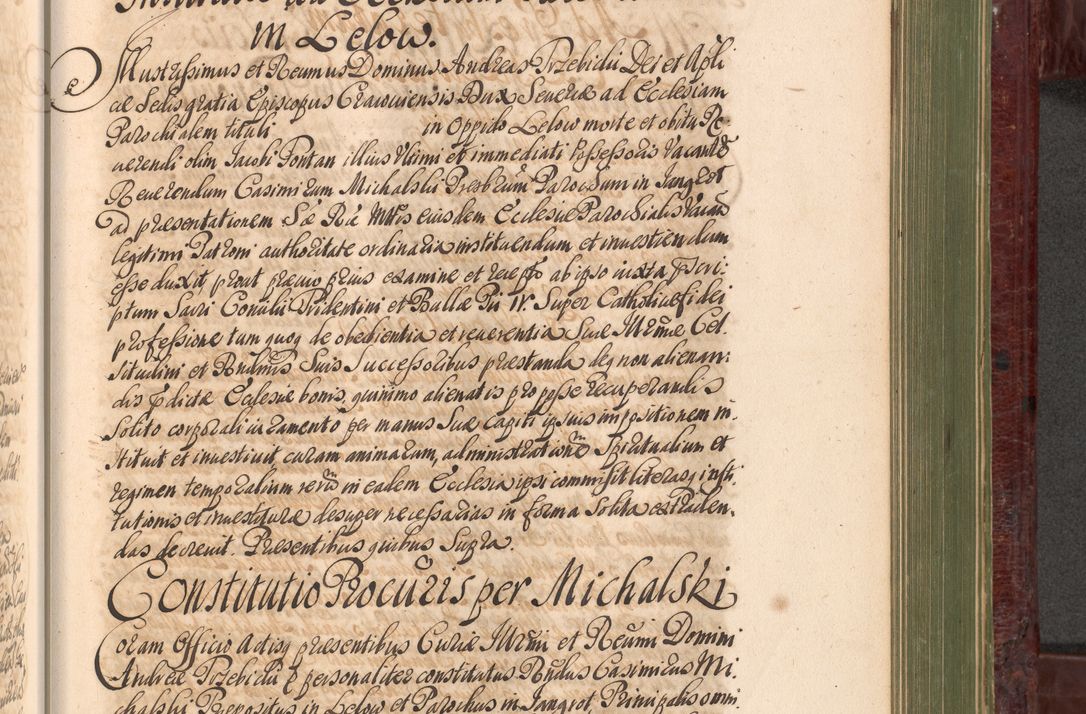 in Lelow.
Illustrissimus et Reumus Dominus Andreas Trzebicki Dei et Apli
cæ Sedis gratia Episcopus Cracouiensis Dux Seueriæ ad Ecclesiam
Parochialem tituli in Oppido Lelow morte et obitu Re
uerendi olim Jacobi Pontan illius Vltimi et immediati Possessoris Vacantē
Reuerendum Casimirum Michalski Presbrum Parochum in Jangrot
ad præsentationem Sæ Ræ Mttis eiusdem Ecclesiæ Parochialis Vacan
legitimi Patroni authoritate ordinaria instituendum et inuestiendum
esse duxit, prout præuio prius examine et recepto ab ipso iuxta præscri:
ptum Sacri Concilii Tridentini et Bullæ Pii IV. Super Catholicæ fidei
professione tum quoq de obedientia et reuerentia Suæ Illrmæ Cel
situdini et Rndmis Suis Successoribus præstanda deq non alienan:
dis p dictæ Ecclesiæ bonis, quinimo alienatis pro posse recuperandis
Solito corporali iuramento per manus Suæ capiti ipsius impositionem in:
stituit et inuestiuit, curam animarum, administrationē Spiritualium et
regimen temporalium rerum in eadem Ecclesia ipsi commisit literasq insti:
tutionis et inuestituræ desuper necessarias in forma Solita extraden:
das decreuit. Præsentibus quibus Supra.
Constitutio Procuris per Michalski
Coram Officio Actisq præsentibus Curiæ Illrmi et Reumi Domini
Andreæ Trzebicki p personaliter constitutus Rndus Casimirus Mi:
chalski Præpositus in Lelow et Parochus in Jangrot, Principalis omni: